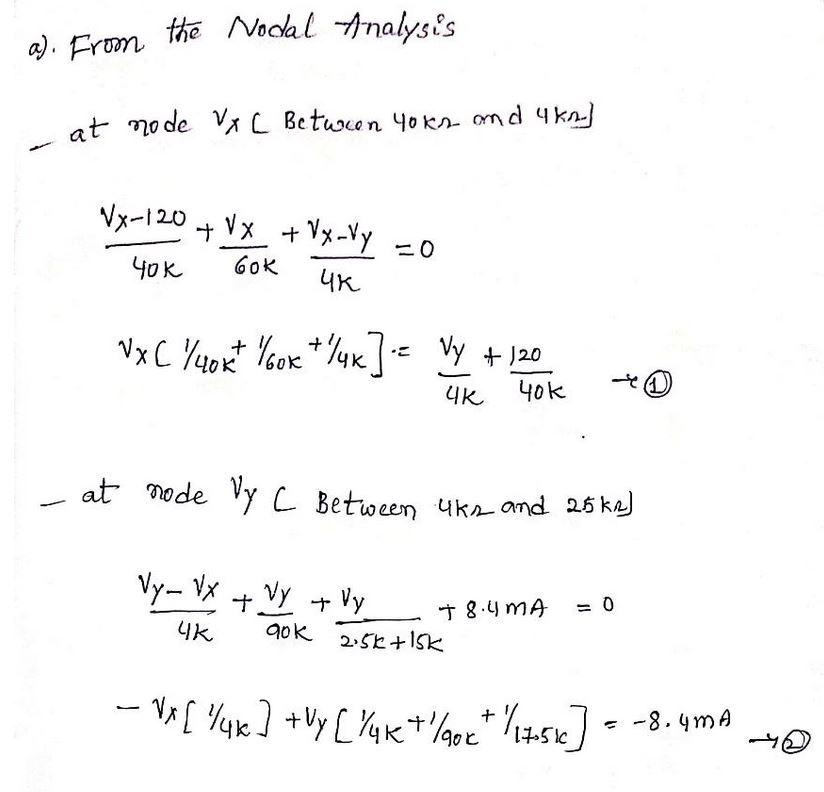 a). From the Nodal Analysis
- at node Vx [ Between 40kΩ and 4kΩ]
Vx-120/40K + Vx/60K + Vx-Vy/4K = 0
Vx [ 1/40K + 1/60K + 1/4K ] = Vy/4K + 120/40K → ①
- at node Vy [ Between 4kΩ and 25kΩ]
Vy-Vx/4K + Vy/90K + Vy/2.5K+15K + 8.4mA = 0
- Vx [ 1/4K ] + Vy [ 1/4K + 1/90K + 1/17.5K ] = -8.4mA → ②